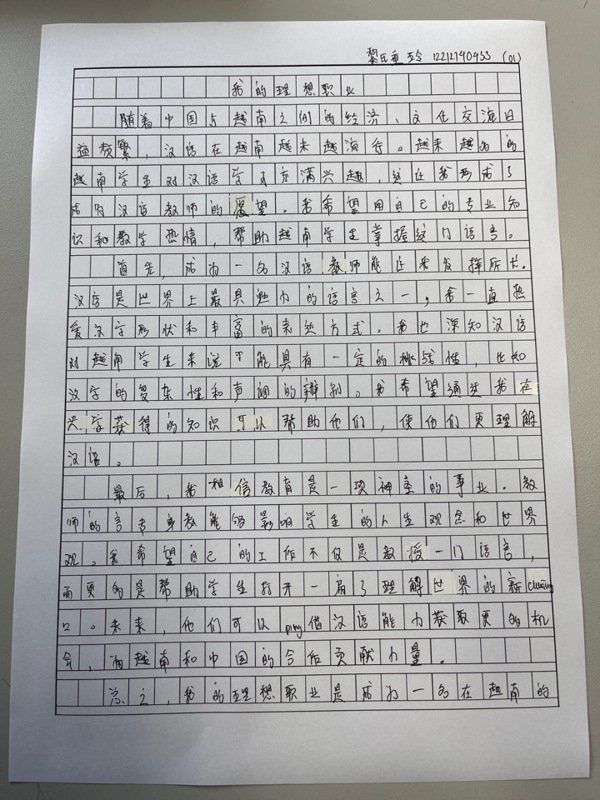 黎氏垂玲 12212140455 (01)
我的理想职业
随着中国与越南之间的经济、文化交流日
益频繁，汉语在越南越来越流行。越来越多的
越南学生对汉语学习充满兴趣，这让我形成了
成为汉语教师的愿望。我希望用自己的专业知
识和教学热情，帮助越南学生掌握这门语言。
首先，成为一名汉语教师能让我发挥所长。
汉语是世界上最具魅力的语言之一，我一直热
爱汉字形状和丰富的表达方式。我也深知汉语
对越南学生来说可能具有一定的挑战性，比如
汉字的复杂性和声调的辩别。我希望通过我在
兴学获得的知识可以帮助他们，使他们更理解
汉语。
最后，我相信教育是一项神圣的事业。教
师的言专身教能够影响学生的人生观念和世界
观。我希望自己的工作不仅是教授一门语言，
而更多的是帮助学生打开一扇了理解世界的新chuang
口。未来，他们可以ping借汉语能力获取更多机
会，为越南和中国的合作贡献力量。
总之，我的理想职业是成为一名在越南的